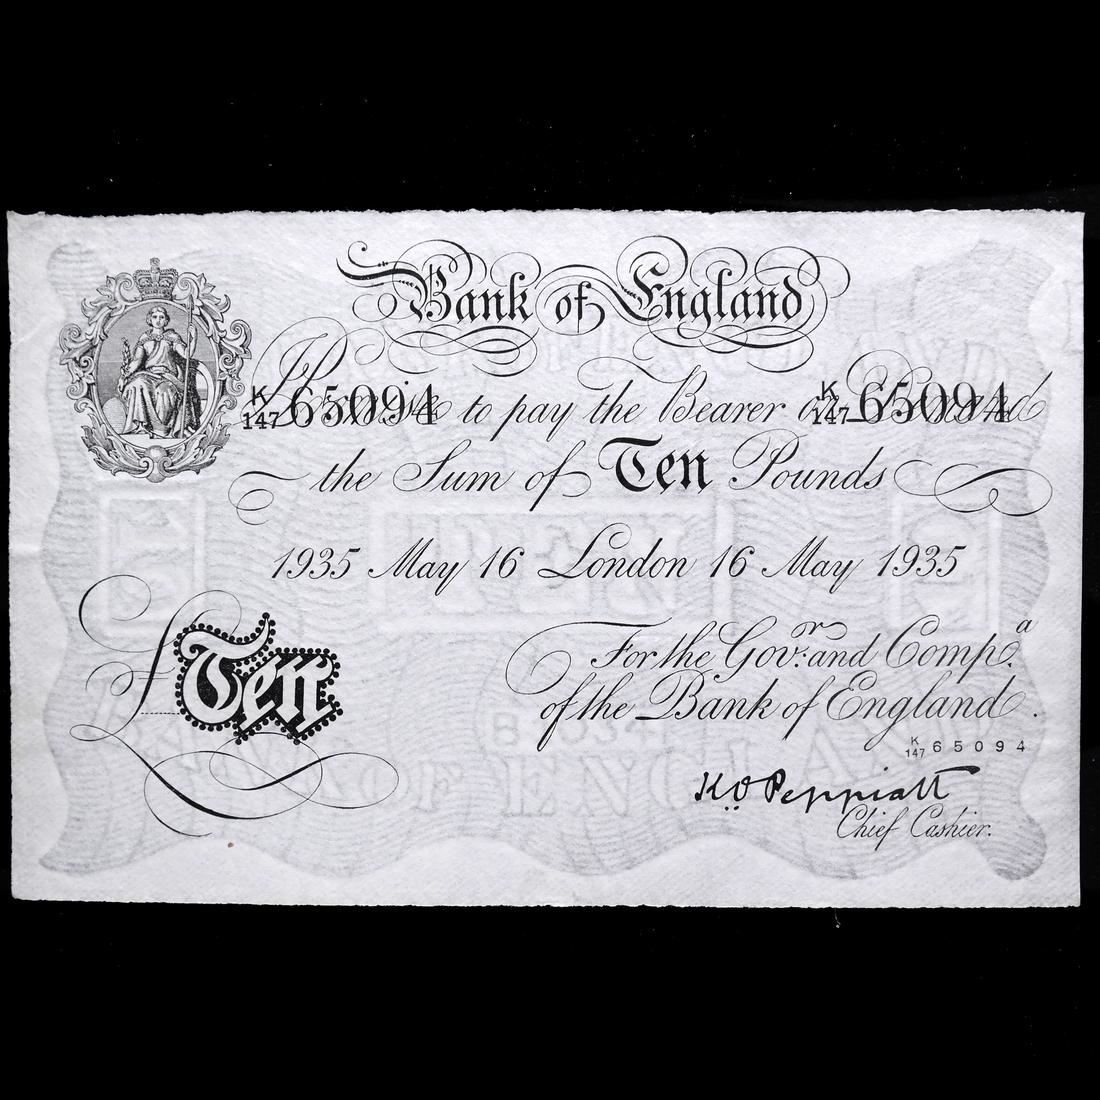 Bank of England
K/147 65094 I Promise to pay the Bearer on Demand K/147 65094
the Sum of Ten Pounds
1935 May 16 London 16 May 1935
For the Gov.or and Comp.a
£Ten of the Bank of England.
K/147 65094
K.O. Peppiatt
Chief Cashier.